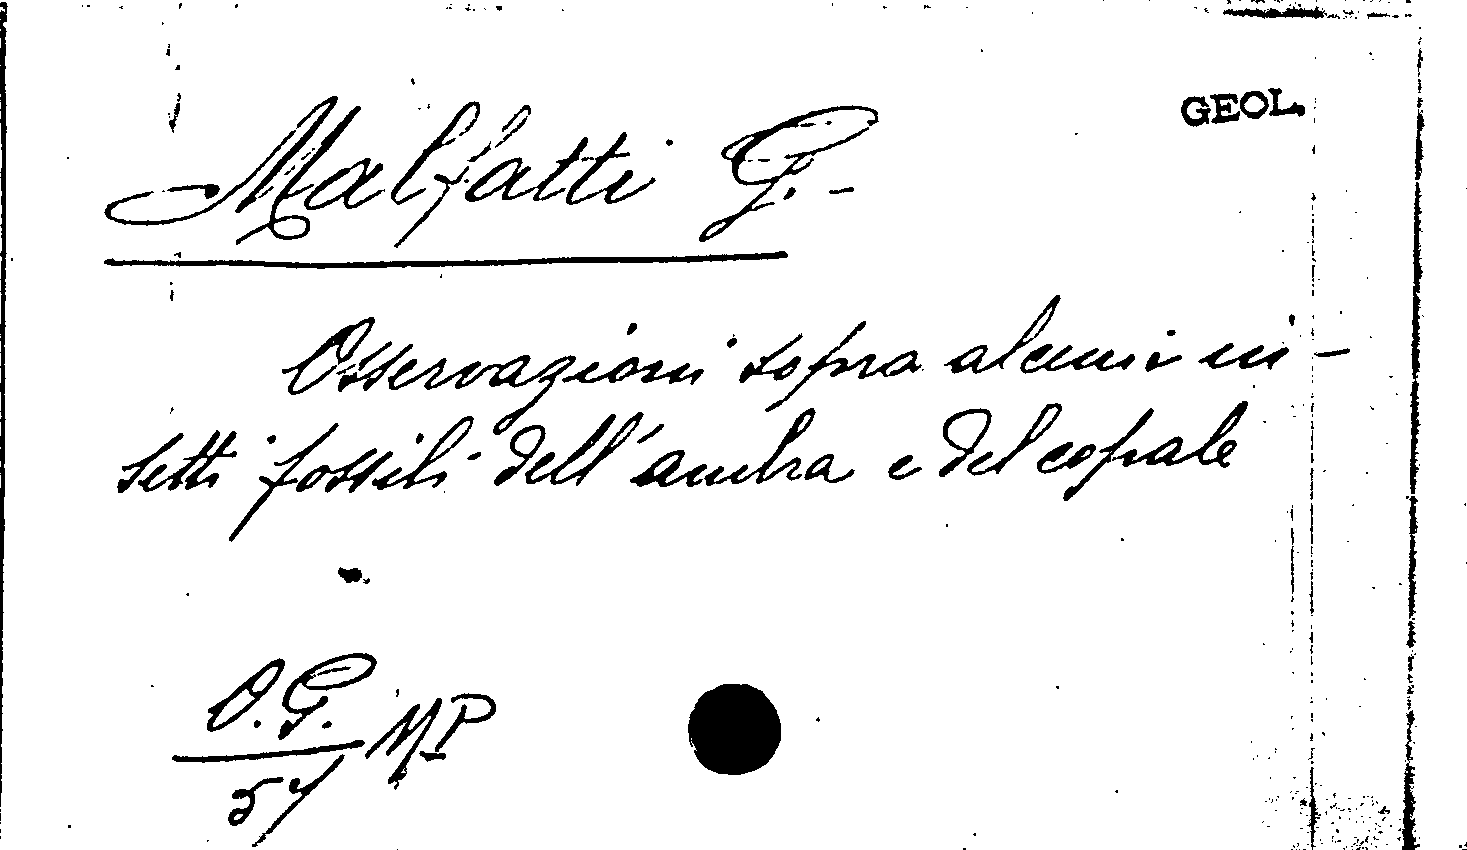 GEOL.
Malfatti G. -
Osservazioni sopra alcuni in-
setti fossili dell'ambra e del copale
O.G. MP
57